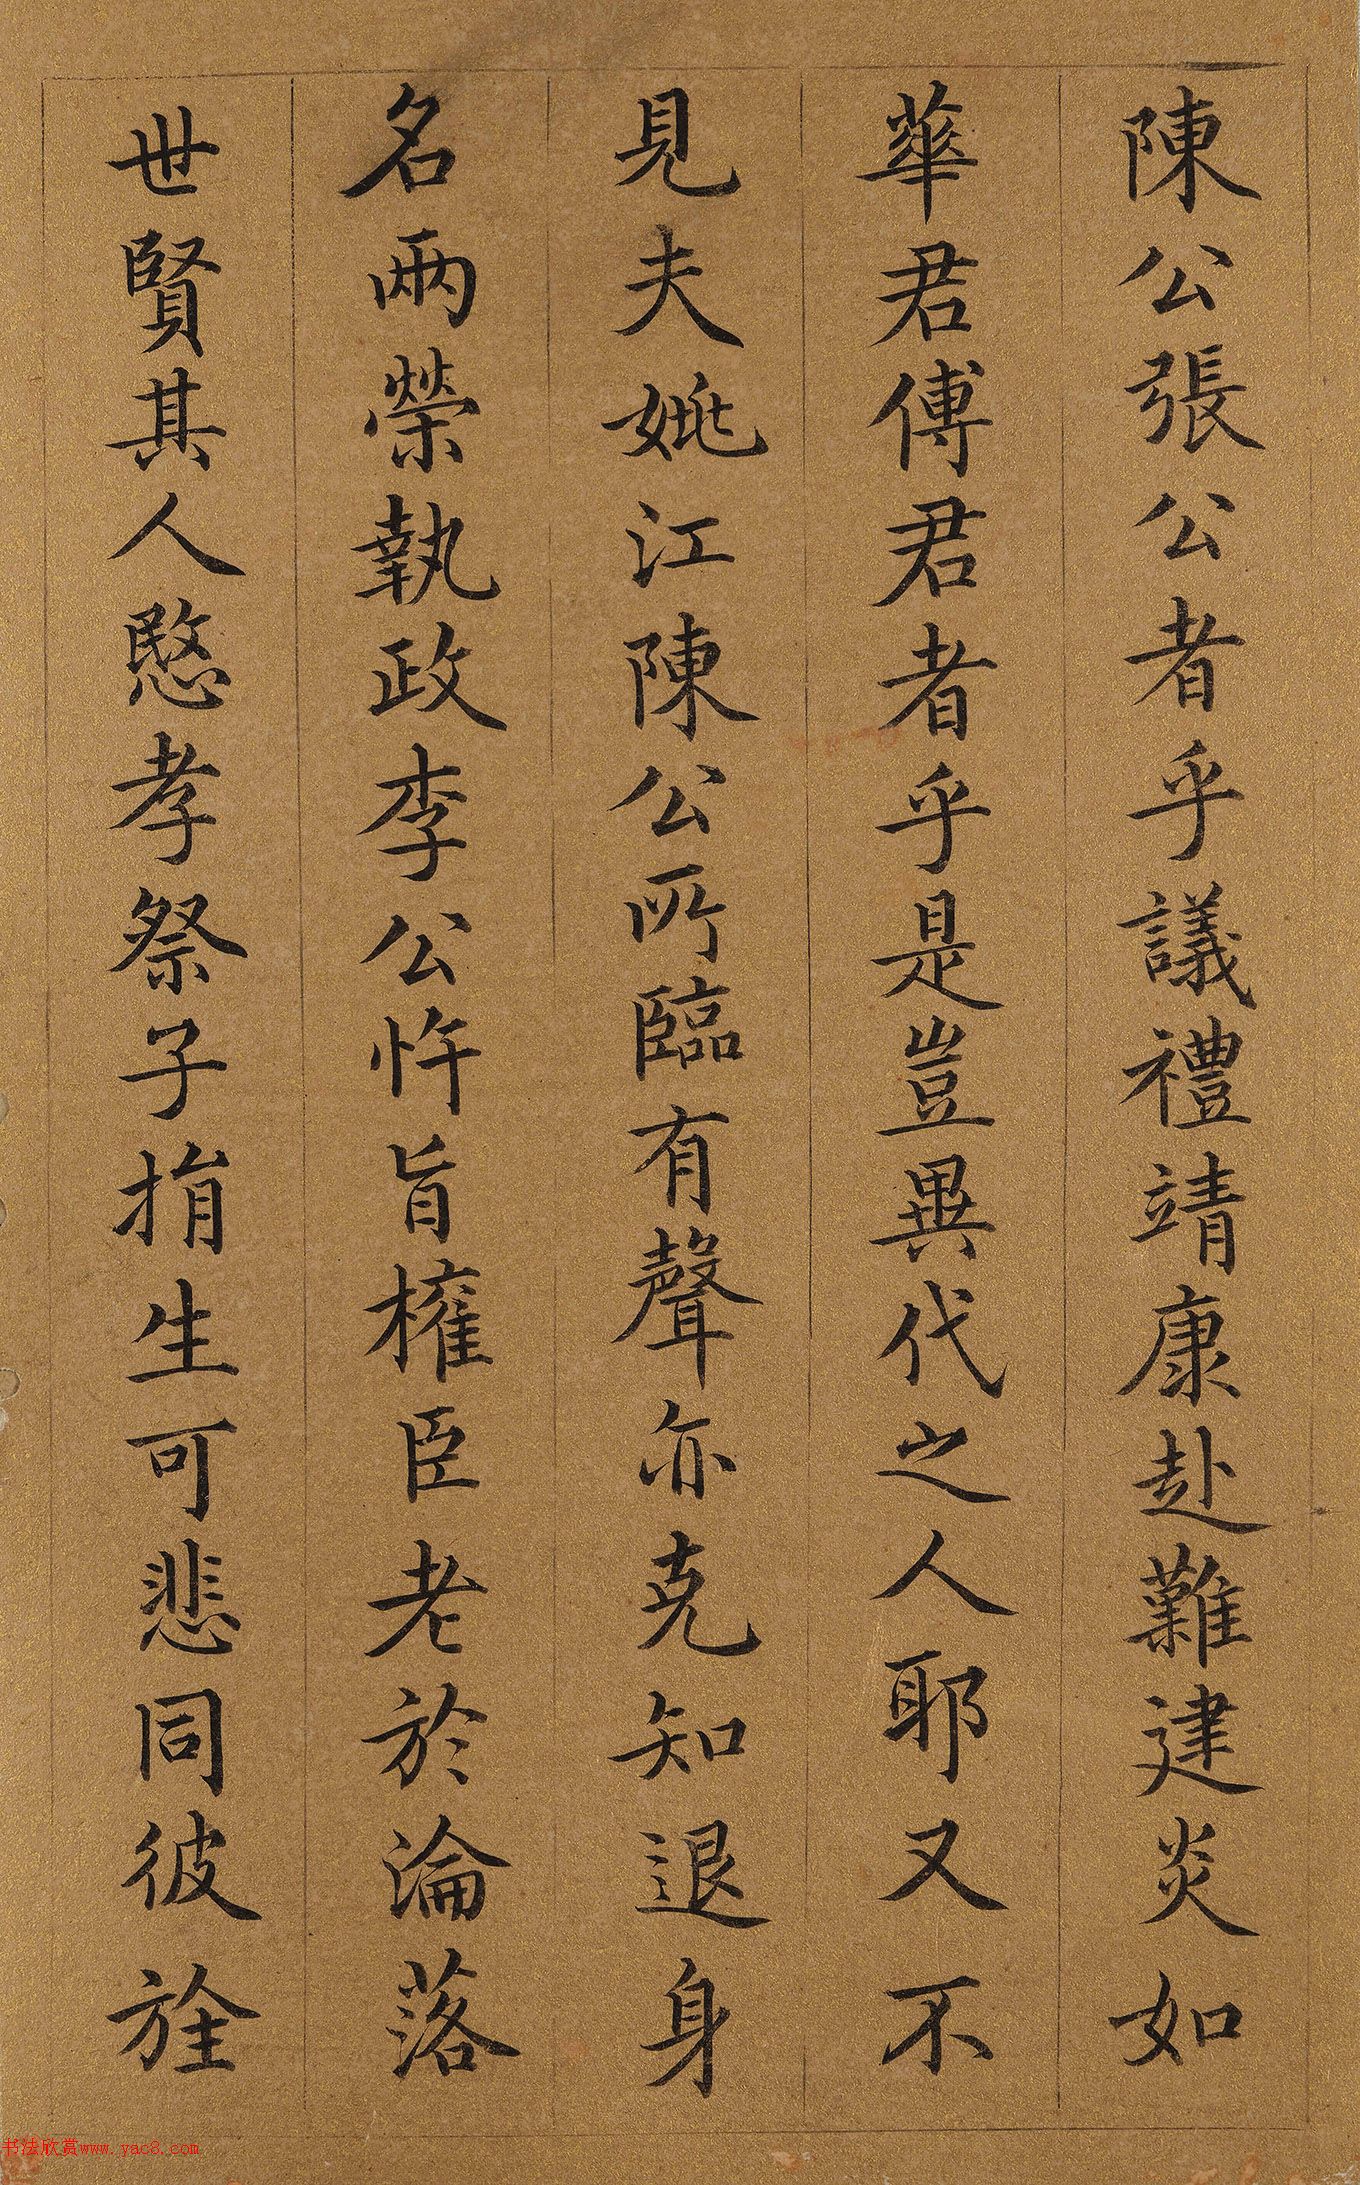 陳公張公者乎議禮靖康赴難建炎如
華君傅君者乎是豈異代之人耶又不
見夫姚江陳公所臨有聲亦克知退身
名兩榮執政李公忤旨權臣老於淪落
世賢其人愍孝祭子捐生可悲同彼旌
书法欣赏www.yac8.com